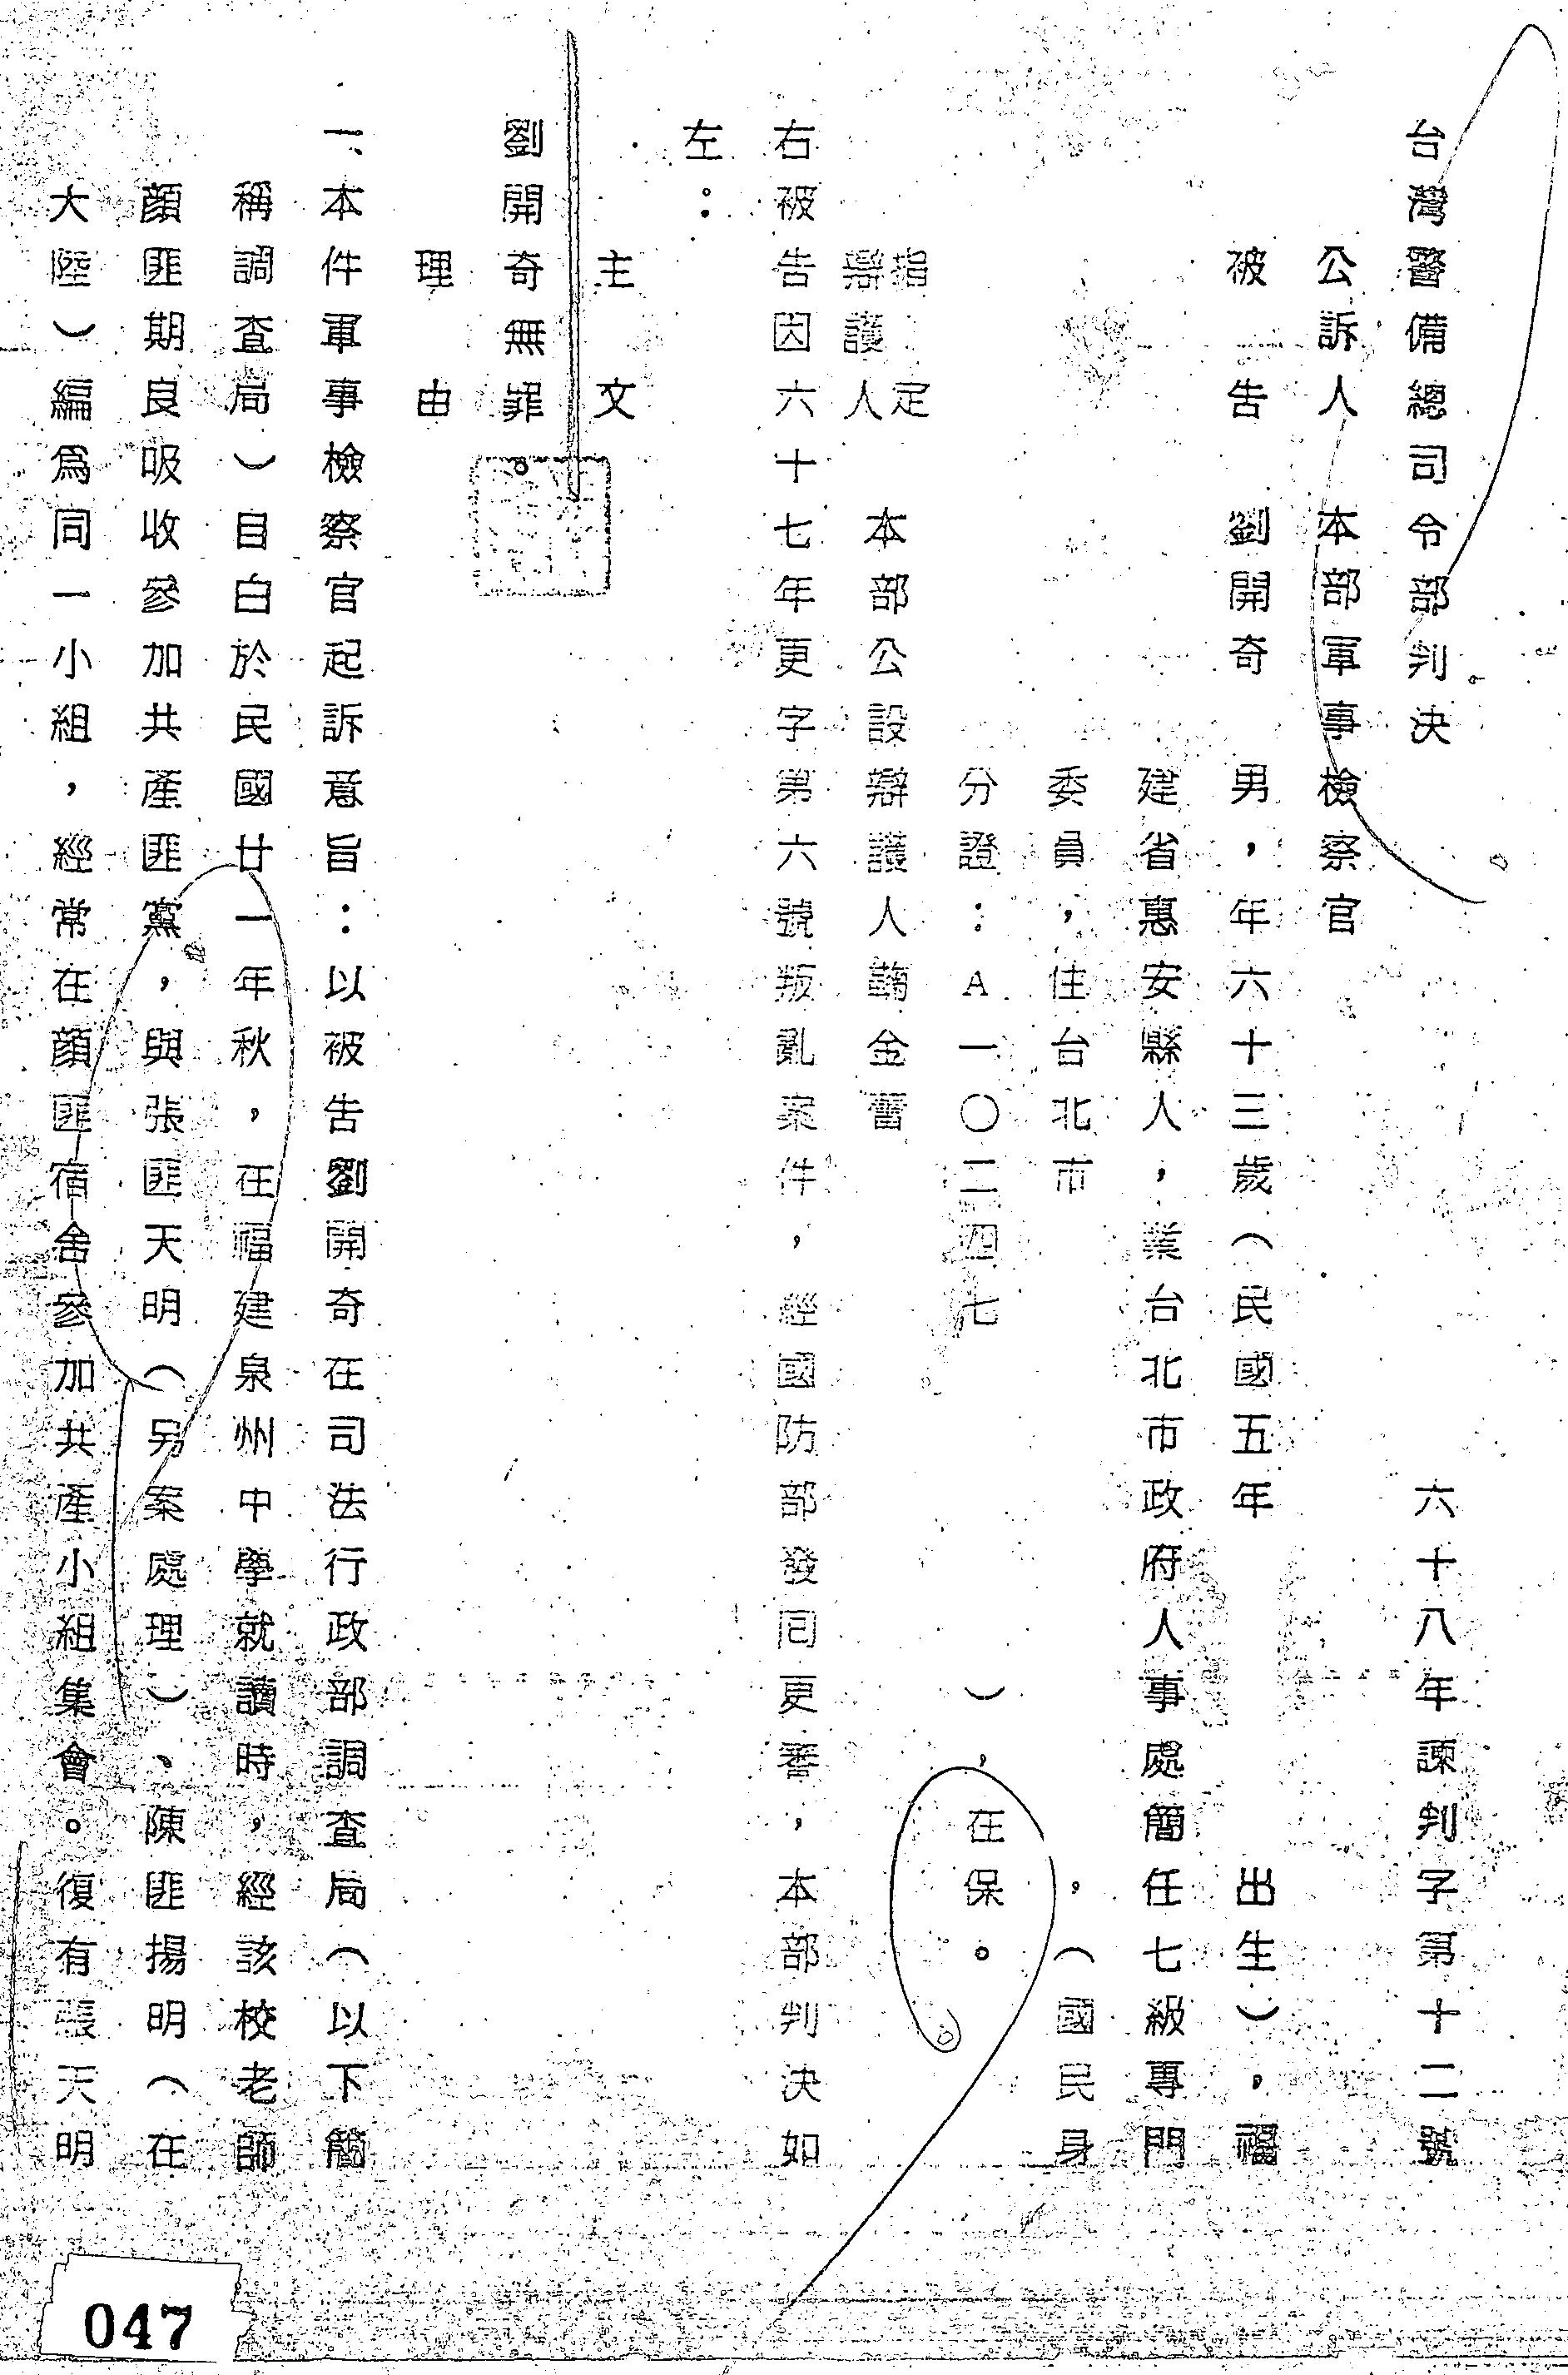 台灣警備總司令部判決
六十八年諫判字第十二號
公訴人 本部軍事檢察官
被告 劉開奇 男,年六十三歲(民國五年 出生),福
建省惠安縣人,業台北市政府人事處簡任七級專門
委員,住台北市 ,(國民身
分證:A一〇二四七 ),在保。
指定
辯護人 本部公設辯護人 金
右被告因六十七年更字第六號叛亂案件,經國防部發回更審,本部判決如
左:
主文
劉開奇無罪。
理由
一、本件軍事檢察官起訴意旨:以被告劉開奇在司法行政部調查局(以下簡
稱調查局)自白於民國廿一年秋,在福建泉州中學就讀時,經該校老師
顏匪期良吸收參加共產匪黨,與張匪天明(另案處理)、陳匪揚明(在
大陸)編為同一小組,經常在顏匪宿舍參加共產小組集會。復有張天明
047